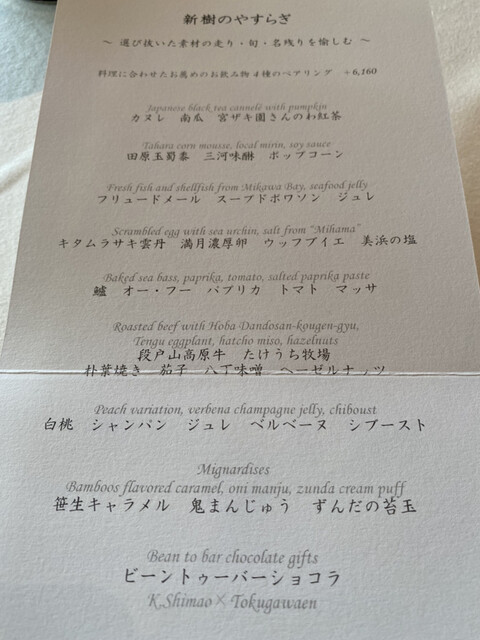 新樹のやすらぎ
～ 選び抜いた素材の走り・旬・名残りを愉しむ ～
料理に合わせたお薦めのお飲み物 4 種のペアリング +6,160
Japanese black tea cannelé with pumpkin
カヌレ 南瓜 宮ザキ園さんのわ紅茶
Tahara corn mousse, local mirin, soy sauce
田原玉蜀黍 三河味醂 ポップコーン
Fresh fish and shellfish from Mikawa Bay, seafood jelly
フリュードメール スープドポワソン ジュレ
Scrambled egg with sea urchin, salt from “Mihama”
キタムラサキ雲丹 満月濃厚卵 ウッフブイエ 美浜の塩
Baked sea bass, paprika, tomato, salted paprika paste
鱸 オー・フー パプリカ トマト マッサ
Roasted beef with Hoba Dandosan-kougen-gyu,
Tengu eggplant, hatcho miso, hazelnuts
段戸山高原牛 たけうち牧場
朴葉焼き 茄子 八丁味噌 ヘーゼルナッツ
Peach variation, verbena champagne jelly, chiboust
白桃 シャンパン ジュレ ベルベーヌ シブースト
Mignardises
Bamboos flavored caramel, oni manju, zunda cream puff
笹生キャラメル 鬼まんじゅう ずんだの苔玉
Bean to bar chocolate gifts
ビーントゥーバーショコラ
K.Shimao × Tokugawaen